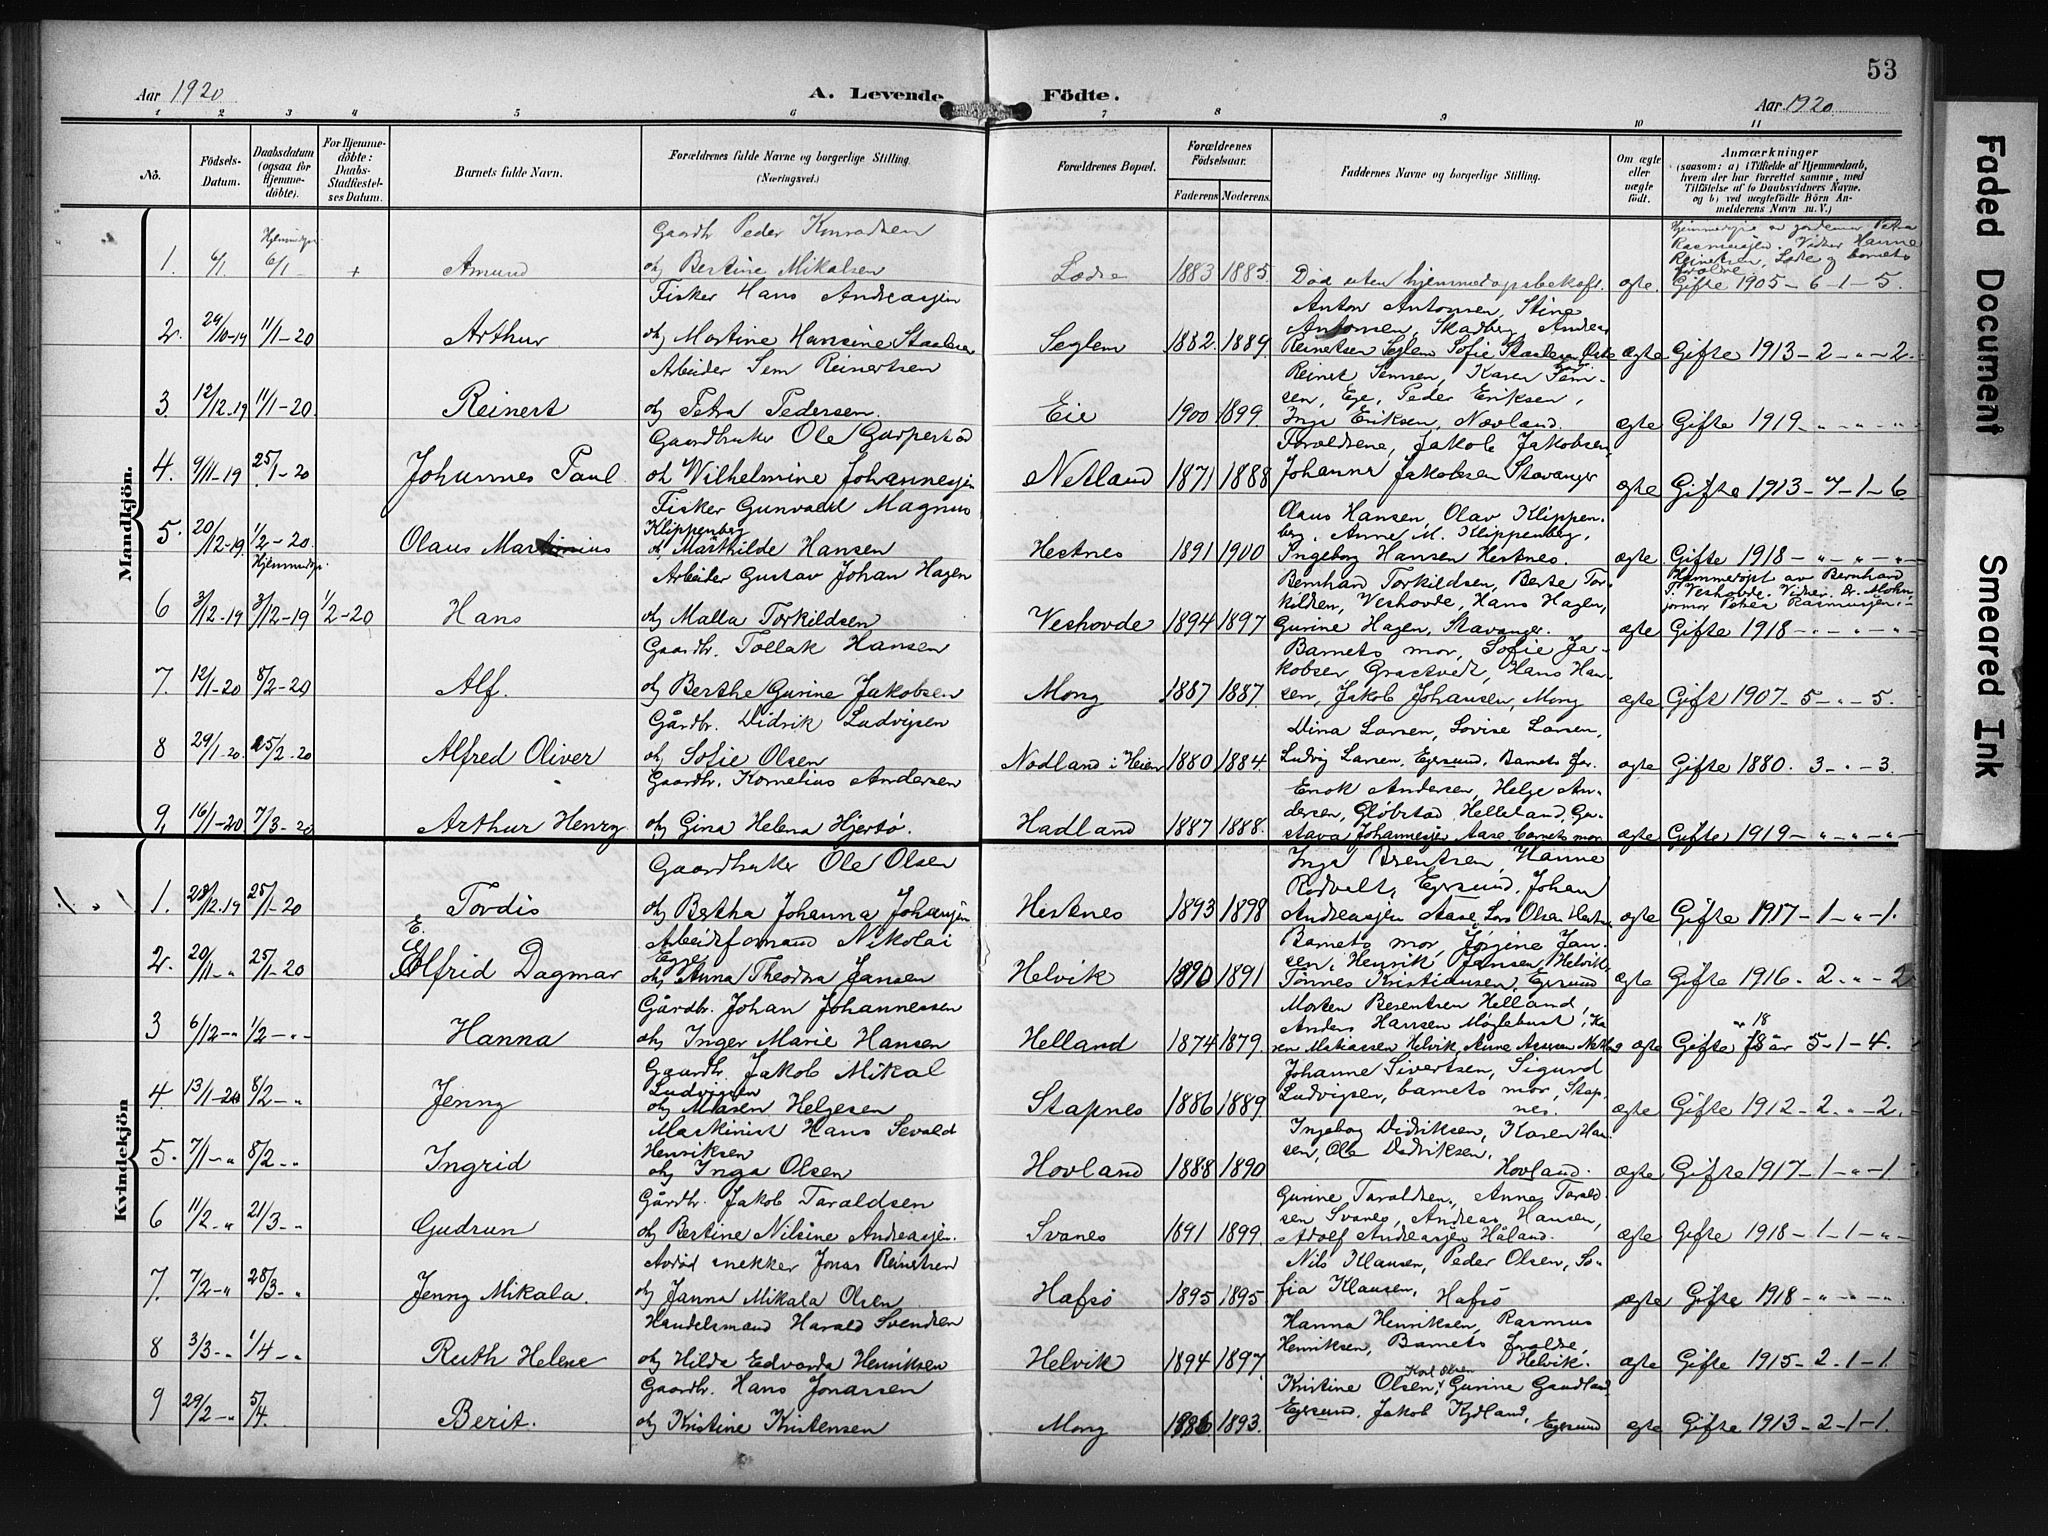 53
Aar 1920
A. Levende Födte.
Aar 1920
1 2 3 4 5 6 7 8 9 10 11
No.
Födsels-Datum.
Daabsdatum (ogsaa for Hjemmedöbte).
For Hjemmedöbte: Daabs-Stadfæstelses Datum.
Barnets fulde Navn.
Forældrenes fulde Navne og borgerlige Stilling. (Næringsvei.)
Forældrenes Bopæl.
Forældrenes Födselsaar.
Faderens Moderens.
Faddernes Navne og borgerlige Stilling.
Om ægte eller uægte födt.
Anmærkninger
(saasom: a) i Tilfælde af Hjemmedaab, hvem der har forrettet samme, med Tilföielse af to Daabsvidners Navne, og b) ved uægtefödte Börn Anmelderens Navn m. V.)
Mandkjön.
1. 6/1 6/1 + Amund
Gaardbr Peder Konradsen
og Bertine Mikalsen
1883 1885. Död uten hjemmedaabsbekræft. ægte. Gifte 1905-6-1-5.
2. 29/10-19 11/1-20 Arthur
Fisker Hans Andreassen
og Martine Hansine Staalesen
Seglem 1882. 1889
Anton Antonsen, Stine
Antonsen, Skadberg, Andreas
Reinertsen Seglem Sofie Staalesen
ægte Gifte 1913-2-"-2.
3. 12/12-19 11/1-20. Reinert
Arbeider Sem Reinertsen
og Petra Pedersen.
Eie 1900 1899
Reinert Semsen, Karen Semsen, Ege, Peder Eriksen,
Inga Eriksen, Nævland.
ægte Gifte 1919-"-"-"
4. 9/11-19 25/1-20 Johannes Paul
Gaardbruker Ole Garpestad
og Wilhelmine Johannessen
Netland 1871 1888
Foreldrene, Jakob Jakobsen,
Johanna Jakobsen Stavanger
ægte Gifte 1913-7-1-6
5. 20/12-19. 1/2-20. Olaus Martinius
Fisker Gunvald Magnus
Klippenberg
og Mathilde Hansen
Hestnes 1891 1900
Olaus Hansen, Olav Klippenberg, Anne M. Klippenberg,
Ingeborg Hansen Hestnes.
ægte. Gifte 1918-"-"-"
6 3/12-19 3/12-19 1/2-20 Hans
Arbeider Gustav Johan Hagen
og Malla Torkildsen
Veshovde 1894 1897
Bernhard Torkildsen, Berte Torkildsen, Veshovde, Hans Hagen,
Gurine Hagen, Stavanger.
ægte Gifte 1918-"-"-"
7. 12/1-20 8/2-20 Alf.
Gaardbr. Tollak Hansen
og Berthe Gurine Jakobsen
Mong 1887 1887.
Barnets mor, Sofie Jakobsen Grastveit, Hans Hansen, Jakob Johansen, Mong
ægte. Gifte 1907-5-"-5.
8 29/1-20. 25/2-20 Alfred Oliver
Gårdbr. Didrik Ludvigsen
og Sofie Olsen
Nodland i Heien 1880 1884.
Dina Larsen, Lovise Larsen,
Ludvig Larsen, Egersund, Barnets far.
ægte Gifte 1880. 3-"-3.
9. 16/1-20 7/3-20 Arthur Henry
Gaardbr. Kornelius Andersen
og Gina Helena Hjertø.
Hadland 1887 1888.
Enok Andersen, Helge Andersen, Gløbstad, Helleland, Gustava Johannessen Aase, barnets mor
ægte Gifte 1919-"-"-"
Kvindekjön
1. 28/12.19 25/1-20 Tordis
Gaardbruker Ole Olsen
og Bertha Johanna Johansen
Hestnes 1893 1898
Hanne
Rodvelt, Egersund, Johan
Andreassen Aase, Lars Olsen
ægte Gifte 1917-1-"-1.
2. 20/11-" 25/1-20 Elfrid Dagmar
Arbeidsformand Nikolai
Egge
og Anna Theodora Jansen
Helvik 1890 1891
Barnets mor, Jørgine Jansen, Henrik Jansen, Helvik,
Tönnes Kristiansen, Egersund
ægte Gifte 1916-2-"-2
3 6/12-" 1/2-" Hanna
Gårdbr. Johan Johannessen
og Inger Marie Hansen
Helland 1874 1879.
Morten Berentsen Helland,
Anders Hansen Møglebust, Karen Matiassen Helvik
ægte Gifte 18 år 5-1-4.
4. 13/1-20 8/2-" Jenny
Gaardbr Jakob Mikal
Ludvigsen
og Maren Helgesen
Stapnes 1886 1889
Johanne Sivertsen, Sigurd
Ludvigsen, barnets mor, Stapnes.
ægte Gifte 1912-2-"-2.
5. 7/1-" 8/2-" Ingrid
Maskinist Hans Sevald
Henriksen
og Inga Olsen
Hovland 1888 1890
Ingeborg Didriksen, Karen Hansen, Ole Didriksen,
Hovland.
ægte Gifte 1917-1-"-1
6 11/2-" 21/3-" Gudrun
Gårdbr. Jakob Taraldsen
og Bertine Nilsine Andreassen.
Svanes 1891 1899.
Gurine Taraldsen, Anna Taraldsen Svanes, Andreas Hansen,
Adolf Andreassen Håland.
ægte Gifte 1918-1-1-"
7. 7/2-" 28/3-" Jenny Mikala.
snekker Jonas Reinertsen
og Janna Mikala Olsen
Hafsø 1895 1895
Nils Klausen, Peder Olsen, Sofia Klausen, Hafsø
ægte Gifte 1918-"-"-"
8 3/3-" 1/4-" Ruth Helene
Handelsmand Harald Svendsen
og Hilda Edvarda Henriksen
Helvik 1894 1897
Hanna Henriksen, Rasmus
Henriksen, Barnets foreldre,
Helvik.
ægte Gifte 1915-2-1-1.
9 29/2-" 5/4. Berit.
Gaardbr. Hans Jonassen
og Kristine Kristensen
Mong 1886 1893.
Kristine Olsen, Karl Olsen, Gurine Gaudland
Egersund. Jakob Kydland, Egersund
ægte Gifte 1913-2-1-1.
Faded Document
Smeared Ink